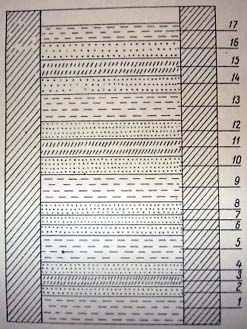 17
16
15
14
13
12
11
10
9
8
7
6
5
4
3
2
1